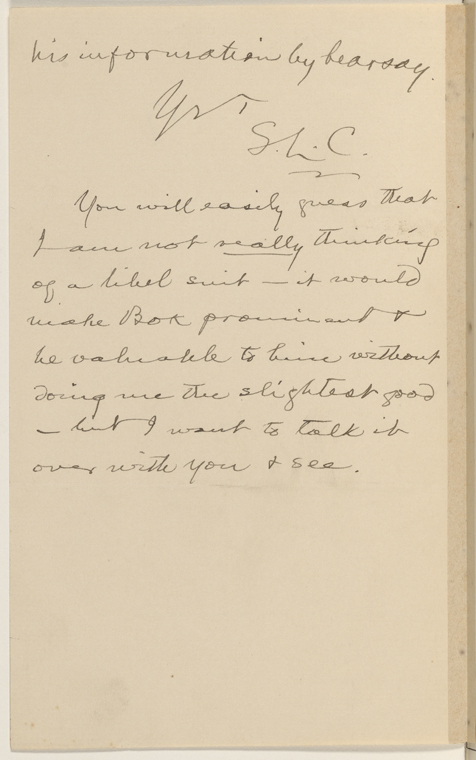 his information by hearsay.
Yrs
S.L.C.
You will easily guess that
I am not really thinking
of a libel suit — it would
make Bok prominent &
be valuable to him without
doing me the slightest good
— but I want to talk it
over with you & see.